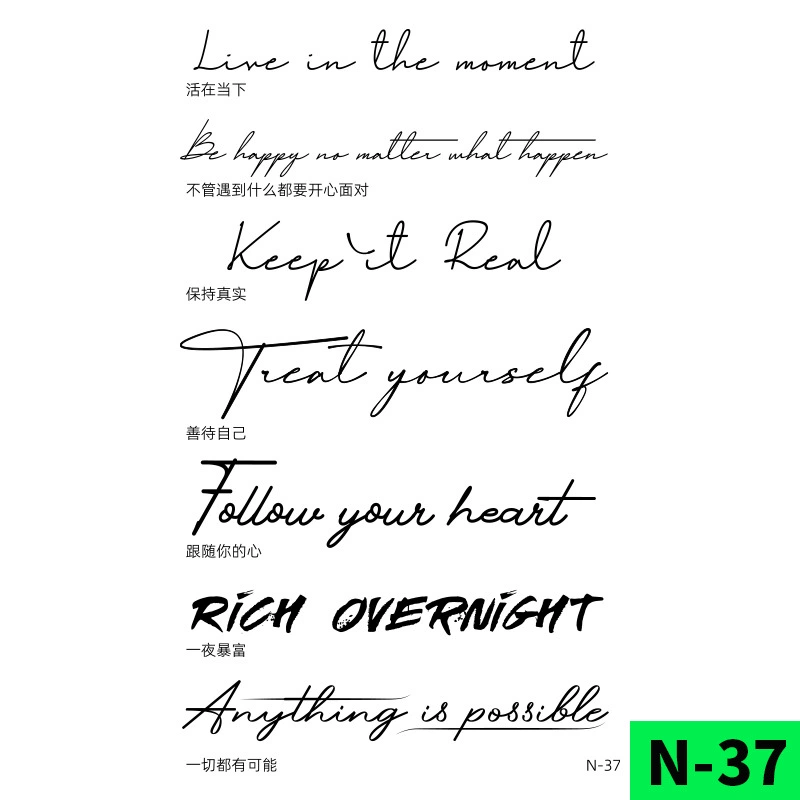 Live in the moment
活在当下
Be happy no matter what happen
不管遇到什么都要开心面对
Keep it Real
保持真实
Treat yourself
善待自己
Follow your heart
跟随你的心
RICH OVERNIGHT
一夜暴富
Anything is possible
一切都有可能
N-37
N-37